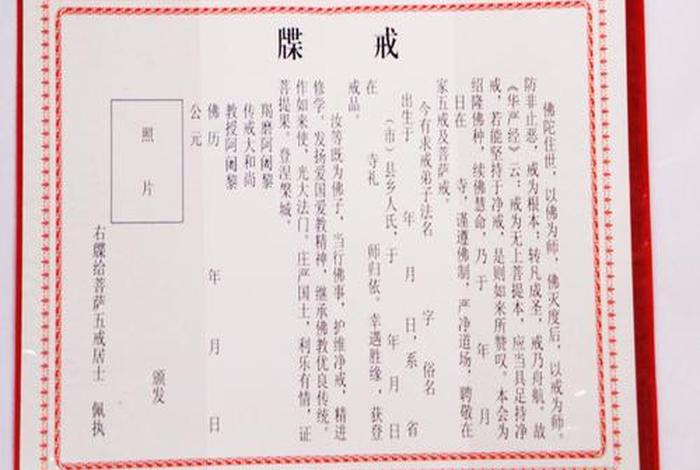 戒牒
佛陀住世，以佛为师，佛灭度后，以戒为师。
防非止恶，戒为根本；转凡成圣，戒乃舟航。故
《华严经》云：戒为无上菩提本，应当具足持净
戒，若能坚持于净戒，是则如来所赞叹。本会为
绍隆佛种，续佛慧命，乃于 年 月
日在 寺，谨遵佛制，严净道场，聘敬在
家五戒及菩萨戒。
今有求戒弟子法名 字 俗名
出生于 年 月 日，系 省
（市）县乡人氏，于 年 月 日
在 寺礼 师归依。幸遇胜缘，获登
戒品。
汝等既为佛子，当行佛事，护维净戒，精进
修学，发扬爱国爱教精神，继承佛教优良传统。
作如来使，光大法门。庄严国土，利乐有情，证
菩提果。登涅槃城。
羯磨阿阇黎
传戒大和尚
教授阿阇黎
佛历 年 月 日
公元
颁发
照片
右牒给菩萨五戒居士 佩执